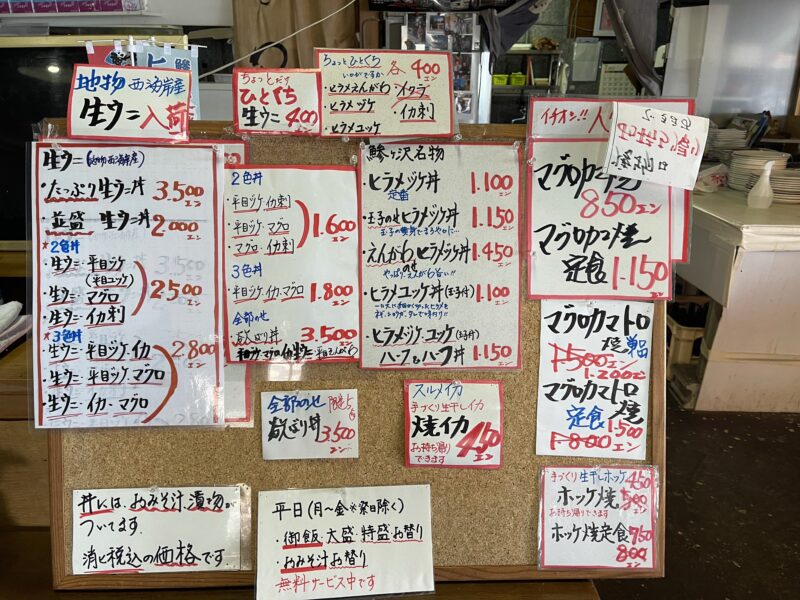 地物 西海岸産
生ウニ入荷
ちょっとだけ
ひとくち
生ウニ 400エン
ちょっとひとくち
いかがですか
各 400エン
・ヒラメえんがわ ・イクラ
・ヒラメヅケ ・イカ刺
・ヒラメユッケ
生ウニ(地物西海岸産)
・たっぷり生ウニ丼 3.500エン
・並盛 生ウニ丼 2.000エン
★2色丼
・生ウニ・平目ヅケ
(平目ユッケ)
・生ウニ・マグロ
・生ウニ・イカ刺
2500エン
★3色丼
・生ウニ・平目ヅケ・イカ
・生ウニ・平目ヅケ・マグロ
・生ウニ・イカ・マグロ
2.800エン
2色丼
・平目ヅケ・イカ刺
・平目ヅケ・マグロ
・マグロ・イカ刺
1.600エン
3色丼
・平目ヅケ・イカ・マグロ 1.800エン
全部のせ
・欲ばり丼 3.500エン
鯵ヶ沢名物
・ヒラメヅケ丼 1.100エン
定番
・玉子のせヒラメヅケ丼 1.150エン
・えんがわのせヒラメヅケ丼 1.450エン
やっぱりえんがわ旨い!!
・ヒラメユッケ丼(玉子付) 1.100エン
・ヒラメヅケ・ユッケ(玉子付)
ハーフ&ハーフ丼 1.150エン
イチオシ!!
マグロカマ
850エン
マグロカマ焼
定食 1.150エン
マグロカマトロ
焼 単品
1.500エン
1.200エン
マグロカマトロ
定食 焼
1.500エン
1.800エン
全部のせ 限定5食
欲ばり丼 3.500エン
スルメイカ
手づくり生干しイカ
焼イカ 450エン
お持ち帰り
できます
手づくり 生干しホッケ 450
ホッケ焼 500エン
お持ち帰りできます
ホッケ焼定食 750
800エン
丼には、おみそ汁、漬物が
ついてます。
消ヒ税込の価格です。
平日(月~金※祭日除く)
・御飯、大盛、特盛、お替り
・おみそ汁お替り
無料サービス中です